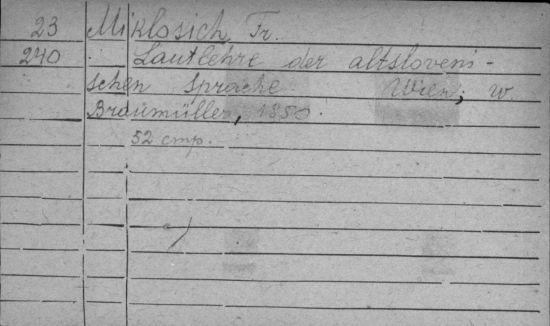 23 Miklosich, Fr.
240 Lautlehre der altsloveni-
schen Sprache Wien; W.
Braumüller, 1850.
52 стр.